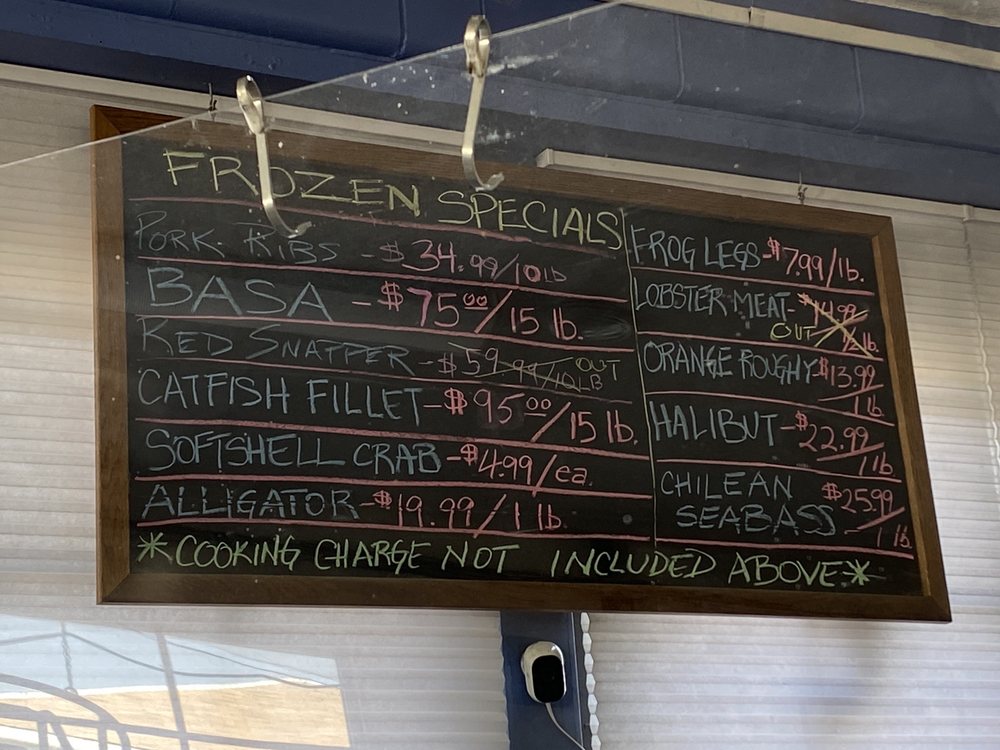 FROZEN SPECIALS
PORK RIBS - $34.99/10lb
BASA - $75.00/15 lb.
RED SNAPPER - $59.99/10LB OUT
CATFISH FILLET - $95.00/15 lb.
SOFTSHELL CRAB - $4.99/ea.
ALLIGATOR - $19.99/1 lb.
FROG LEGS - $7.99/lb.
LOBSTER MEAT - $14.99/½ lb. OUT
ORANGE ROUGHY $13.99/1 lb.
HALIBUT - $22.99/1 lb.
CHILEAN SEABASS $25.99/1 lb.
*COOKING CHARGE NOT INCLUDED ABOVE*